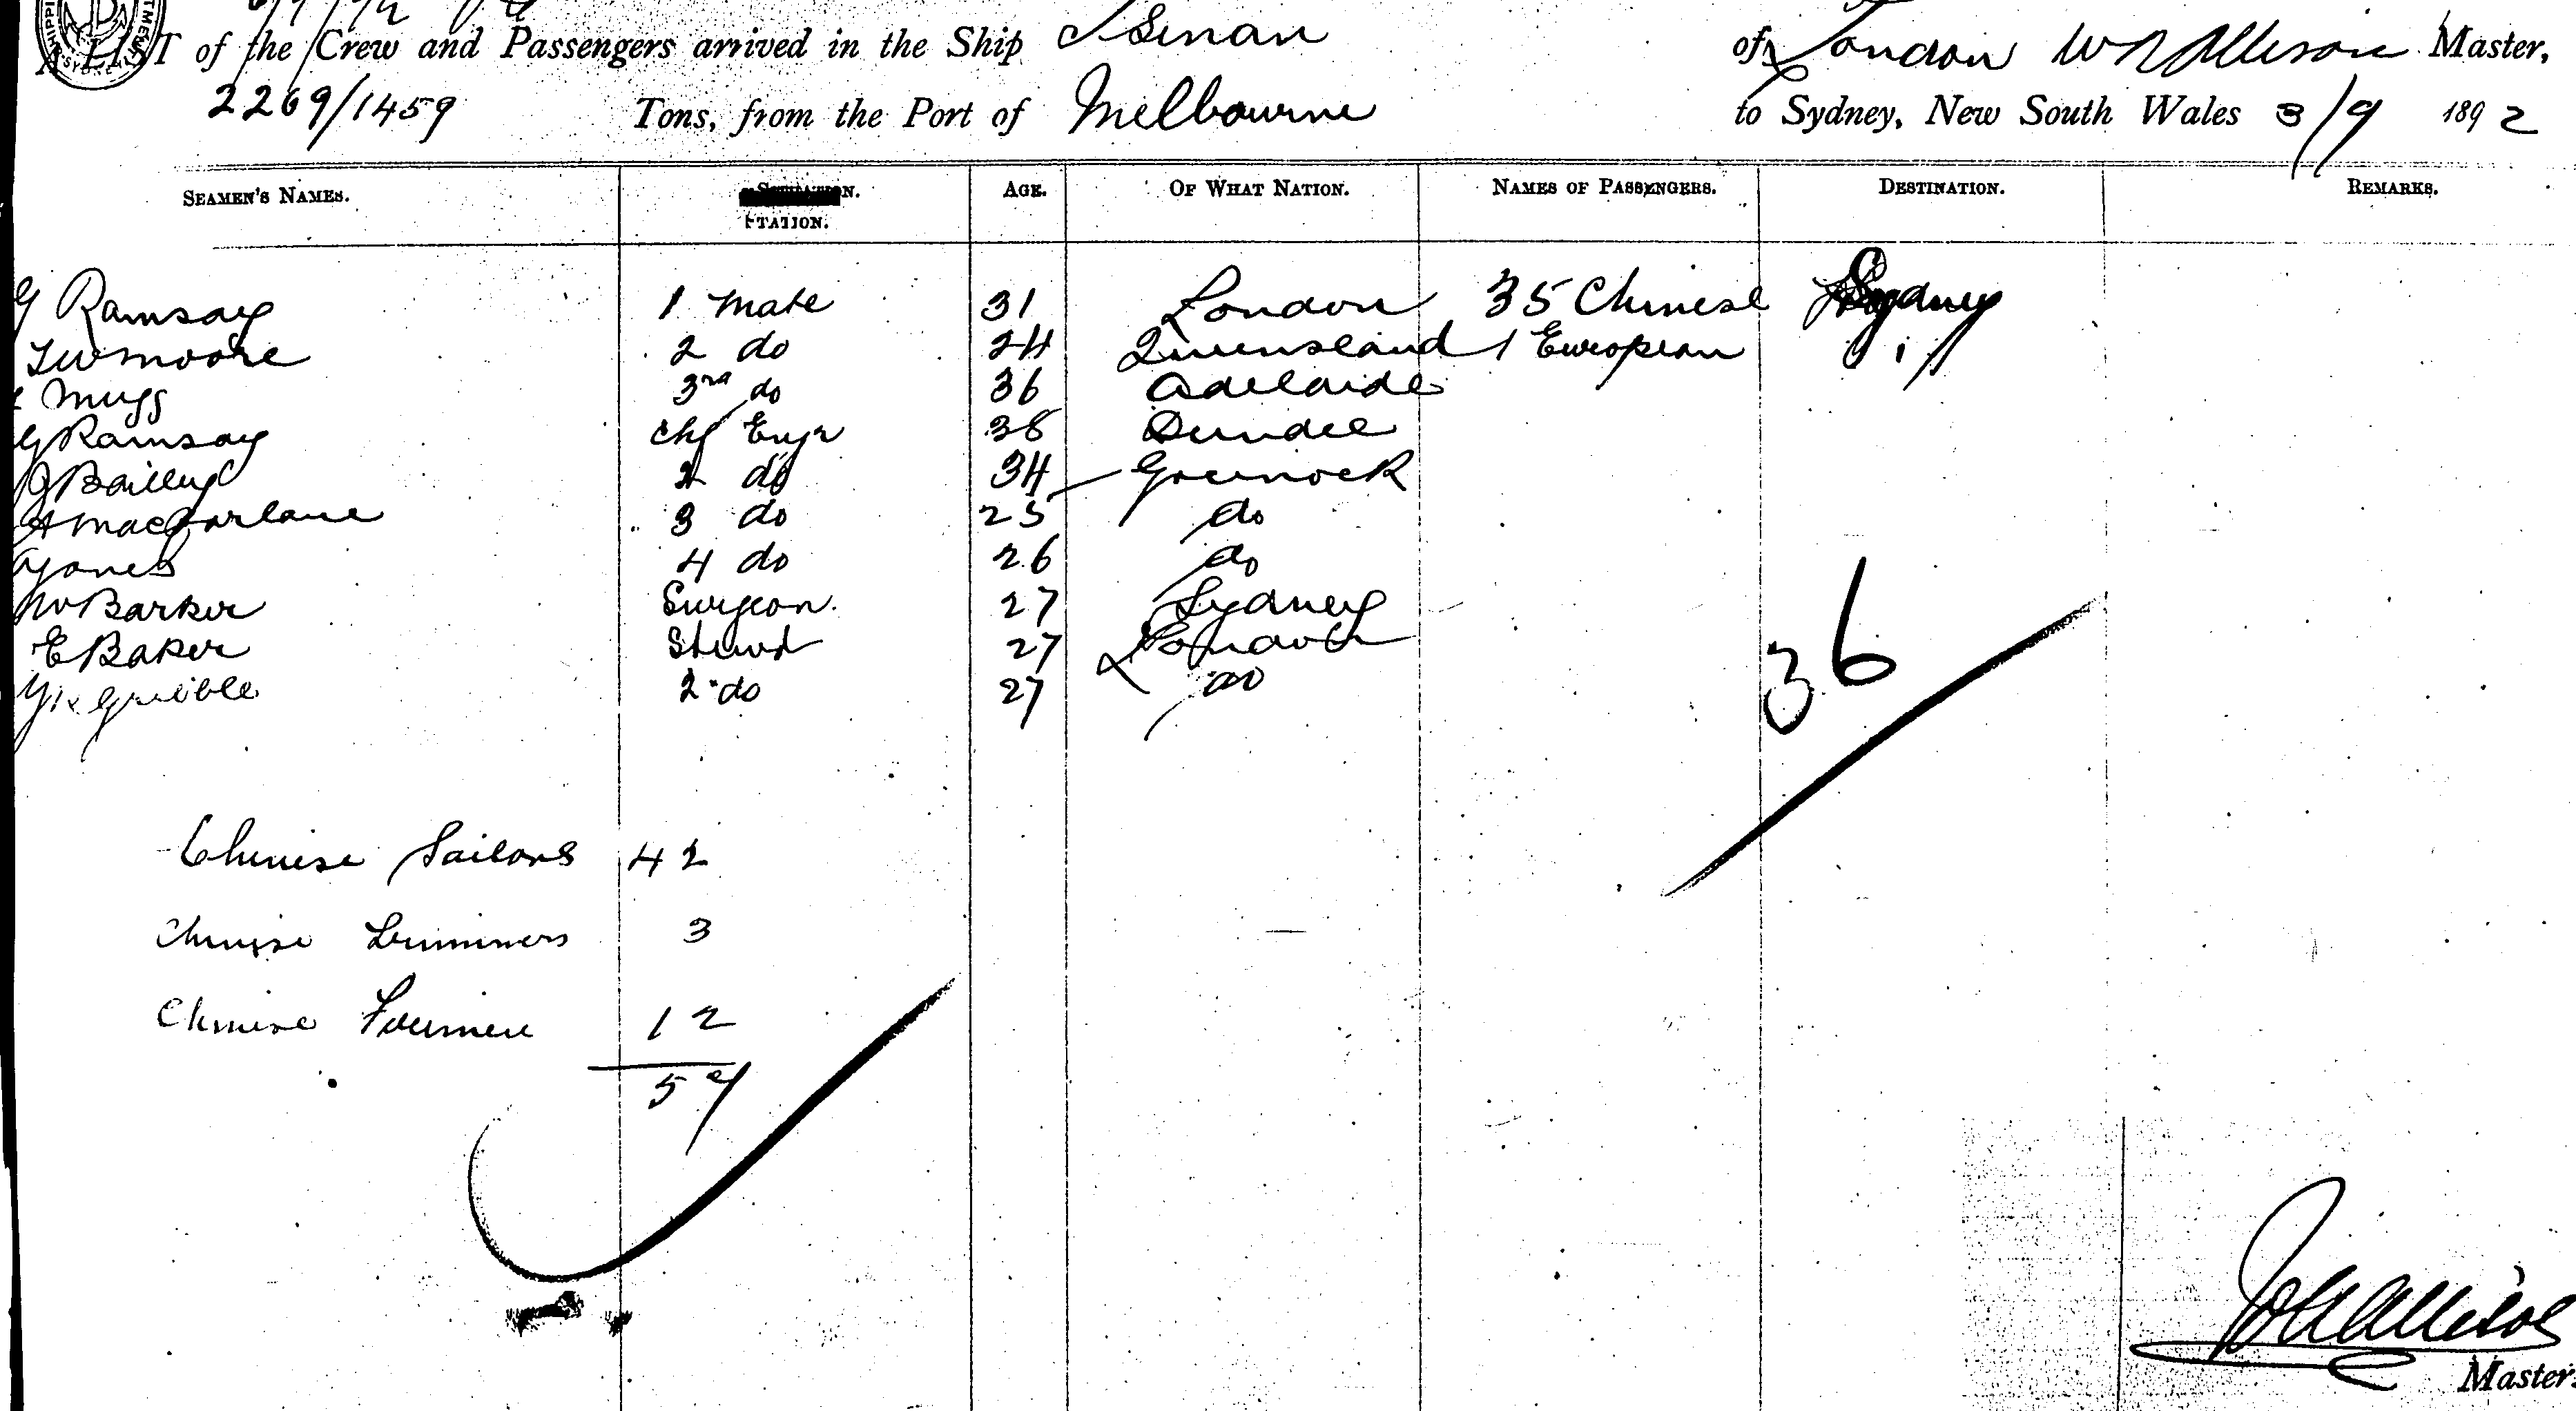 A LIST of the Crew and Passengers arrived in the Ship Tsinan of London W Allison Master,
2269/1459 Tons, from the Port of Melbourne to Sydney, New South Wales 3/9 1892
SEAMEN'S NAMES. STATION. AGE. OF WHAT NATION. NAMES OF PASSENGERS. DESTINATION. REMARKS.
G Ramsay 1 Mate 31 London 35 Chinese Sydney
Moore 2 do 24 Queensland 1 European "
Mugg 3rd do 36 Adelaide
G Ramsay Chf Engr 38 Dundee
J Bailley 2 do 34 Greenock
A Macfarlane 3 do 25 do
Jones 4 do 26 do
W Barker Surgeon 27 Sydney
E Baker Stewd 27 London
Gribble 2 do 27 do
36
Chinese Sailors 42
Chinese Trimmers 3
Chinese Firemen 12
57
Allison
Master.